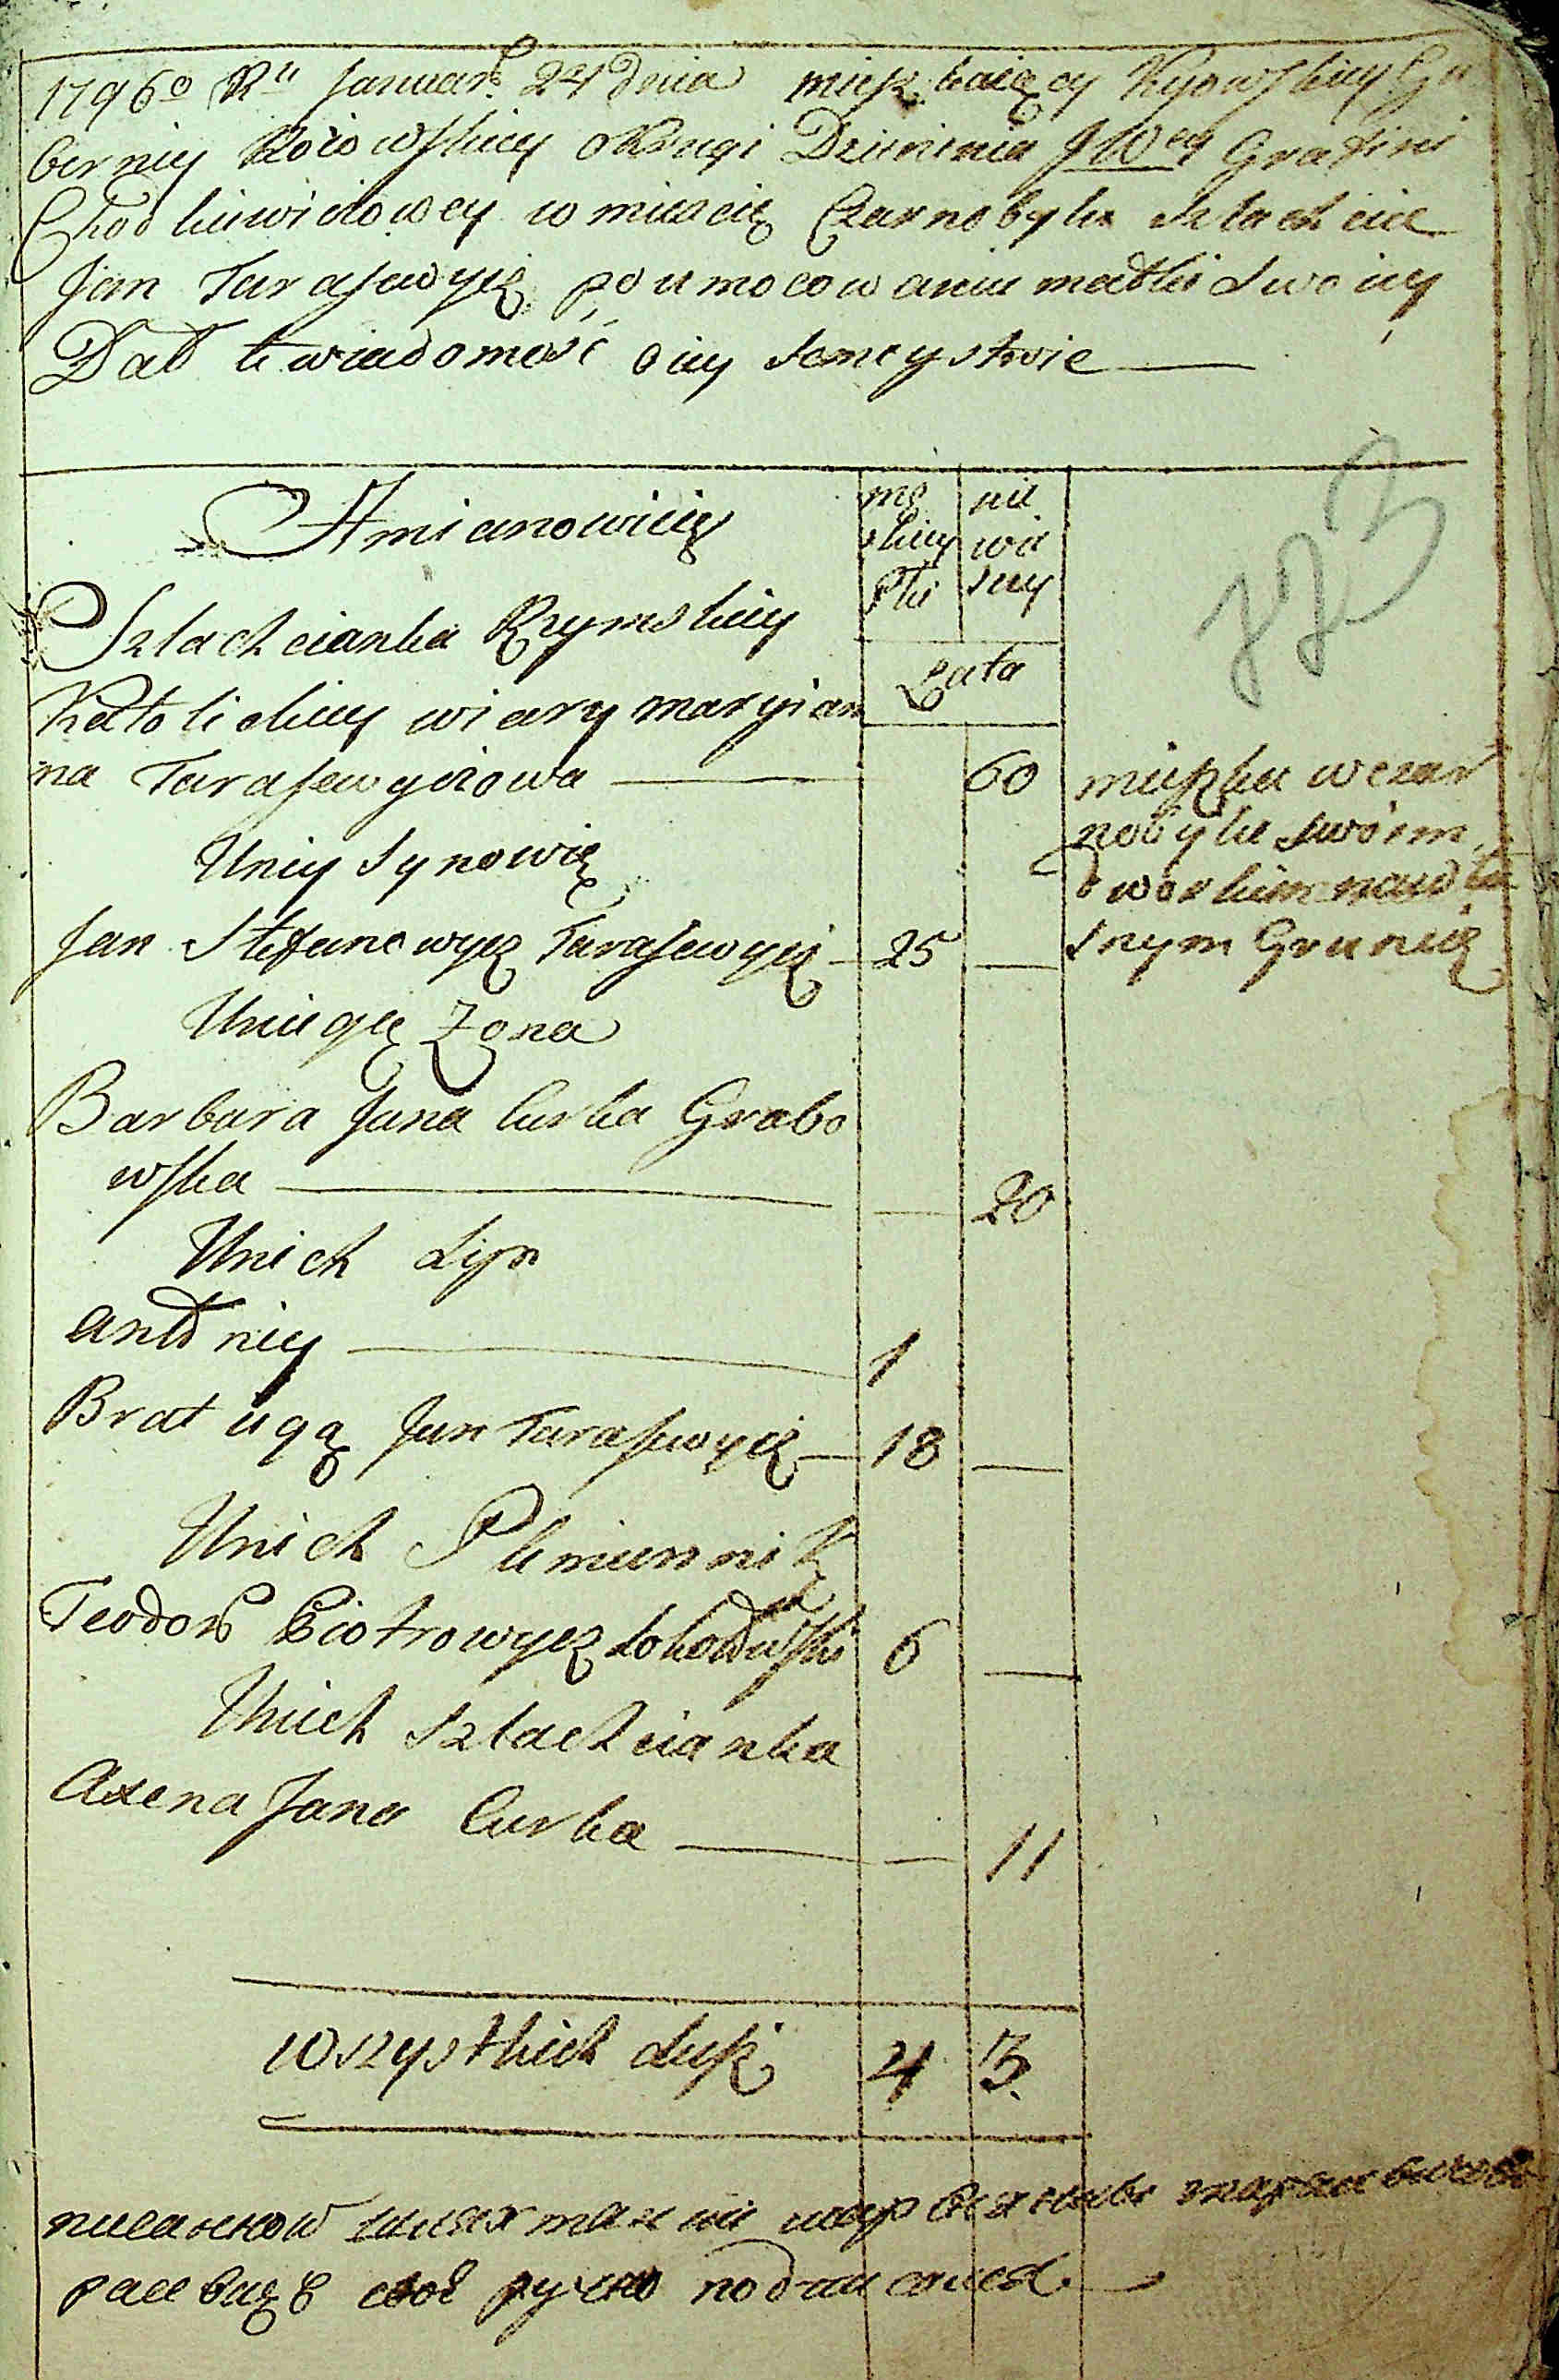 1796º Rᵘ Januar. 24 dnia mieszkaięcy Kyowskiey Gu
berniy Rożowskiey okrugi Dziuninia JWey Grafini
Chodkiewiczowey w mieście Czarnobylu szlachcic
Jan Tarasewycz po umocowaniu matki swoiey
Dał te wiadomość o iey semeystwie
Amianowicie
mę
skiey
płci
nie
wie
sciey
Lata
Szlachcianka Rzymskiey
Katolickiey wiary maryian
na Tarasewyczowa 60
mieszka w czar
nobylu swoim
dworkiem na wła
snym Gruncie
U niey synowie
Jan Stefanowycz Tarasewycz 25
U niego Żona
Barbara Jana Curka Grabo
wska 20
U nich syn
antoniy 1
Brat iego Jan Tarasewycz 18
U nich Plemiennik
Teodor Piotrowycz Sokołowski 6
U nich szlachcianka
Axena Jana Curka 11
wszystkich dusz 4 3
323
рукою подписался